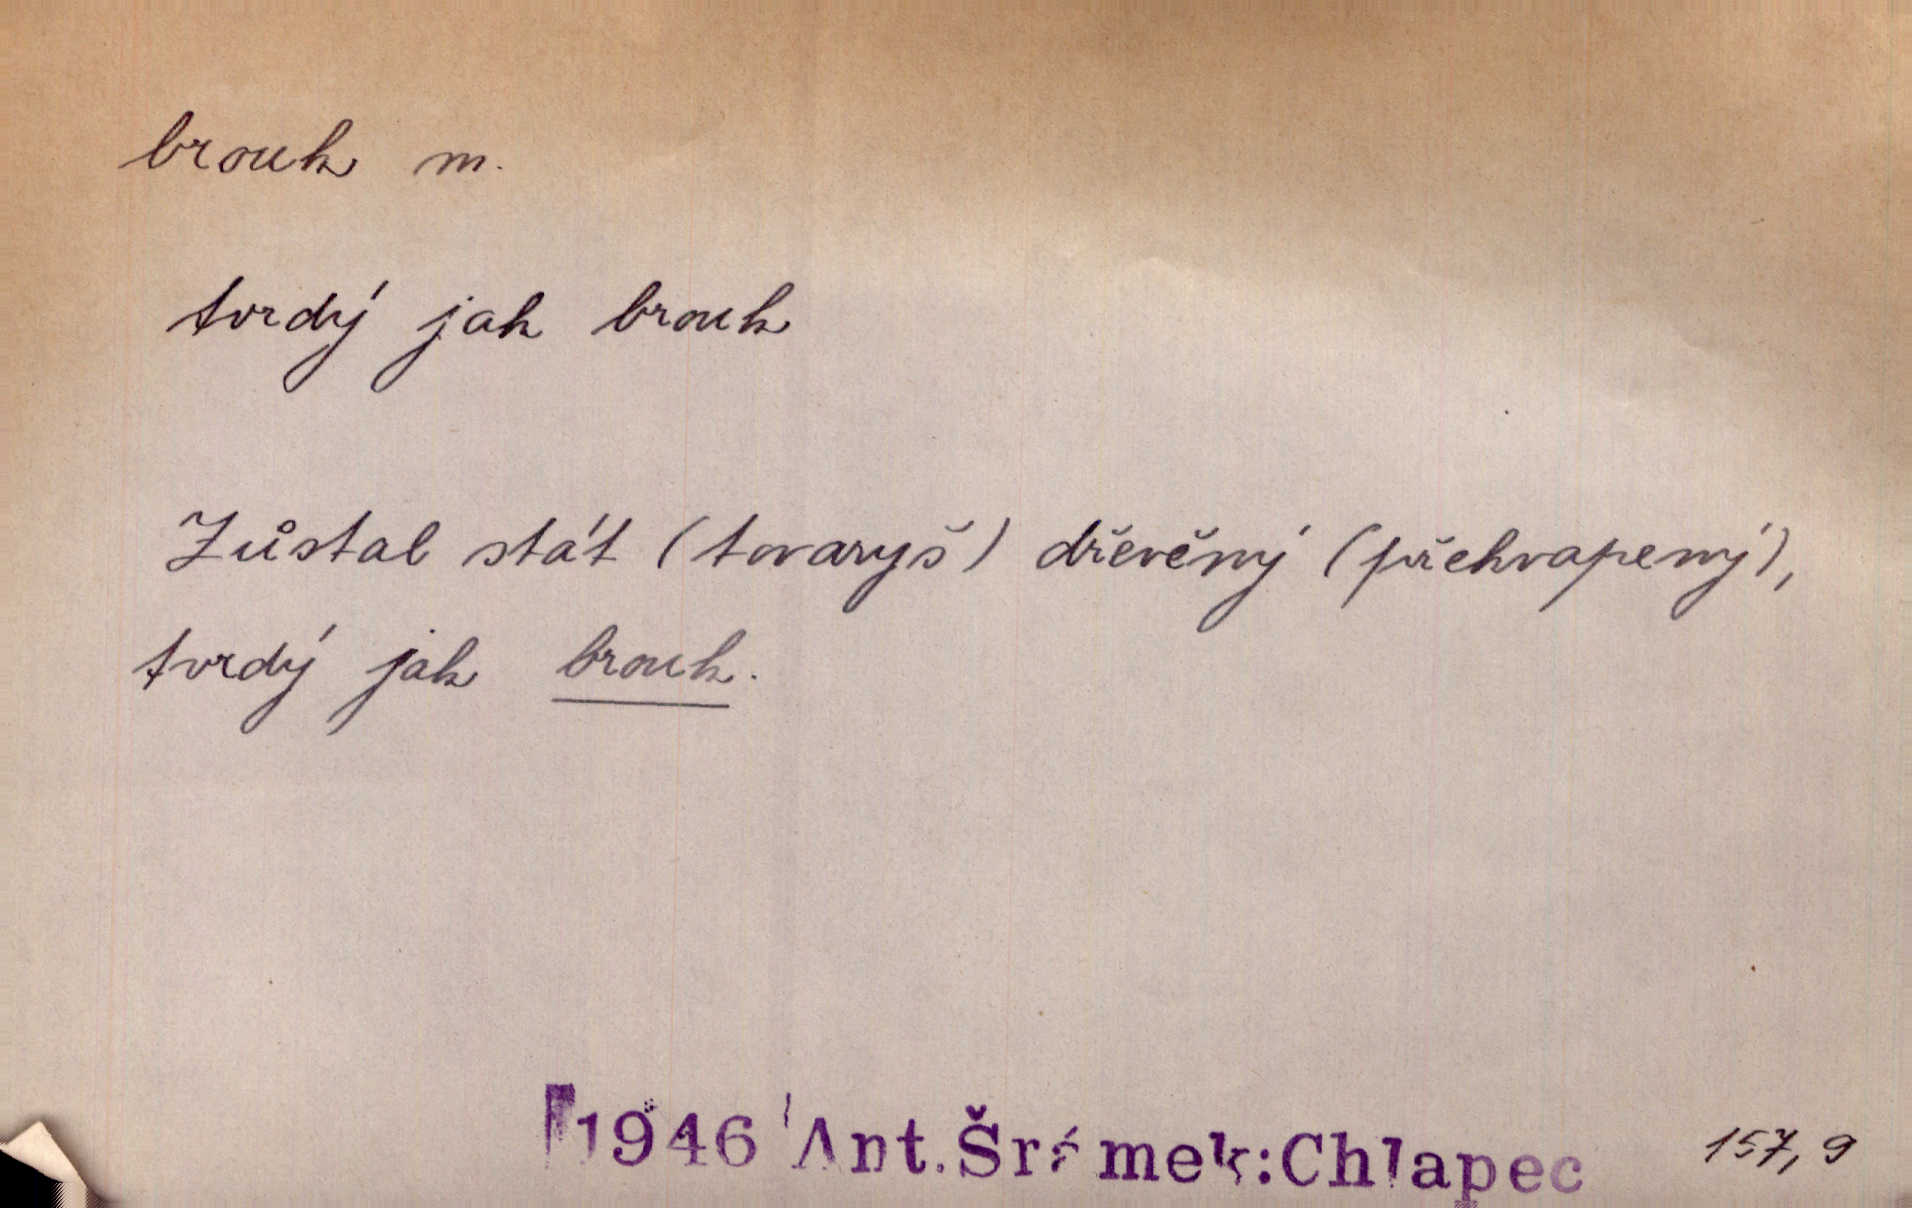 brouk m.
tvrdý jak brouk
Zůstal stát (tovaryš) dřevěný (překvapený),
tvrdý jak brouk.
1946 Ant.Šrámek:Chlapec 157,9